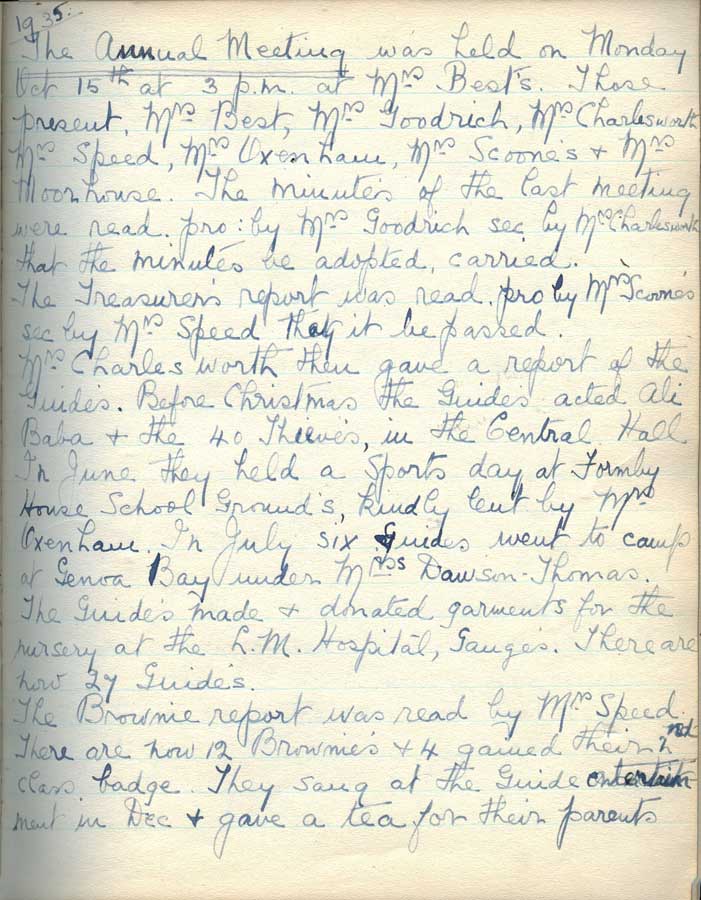 1935.
The Annual Meeting was held on Monday
Oct 15th at 3 p.m. at Mrs Best's. Those
present, Mrs Best, Mrs Goodrich, Mrs Charlesworth
Mrs Speed, Mrs Oxenham, Mrs Scoones & Mrs
Moorhouse. The minutes of the last meeting
were read. pro: by Mrs Goodrich sec by Mrs Charlesworth
that the minutes be adopted, carried.
The Treasurer's report was read. pro by Mrs Scoones
sec by Mrs Speed that it be passed.
Mrs Charlesworth then gave a report of the
Guides. Before Christmas the Guides acted Ali
Baba & the 40 Thieves, in the Central Hall
In June they held a Sports day at Formby
House School Grounds, kindly lent by Mrs
Oxenham. In July six Guides went to camp
at Genoa Bay under Mrs Dawson-Thomas.
The Guides made & donated garments for the
nursery at the L.M. Hospital, Ganges. There are
now 27 Guides.
The Brownie report was read by Mrs Speed.
There are now 12 Brownies & 4 gained their 2nd
class badge. They sang at the Guide entertain
ment in Dec & gave a tea for their parents